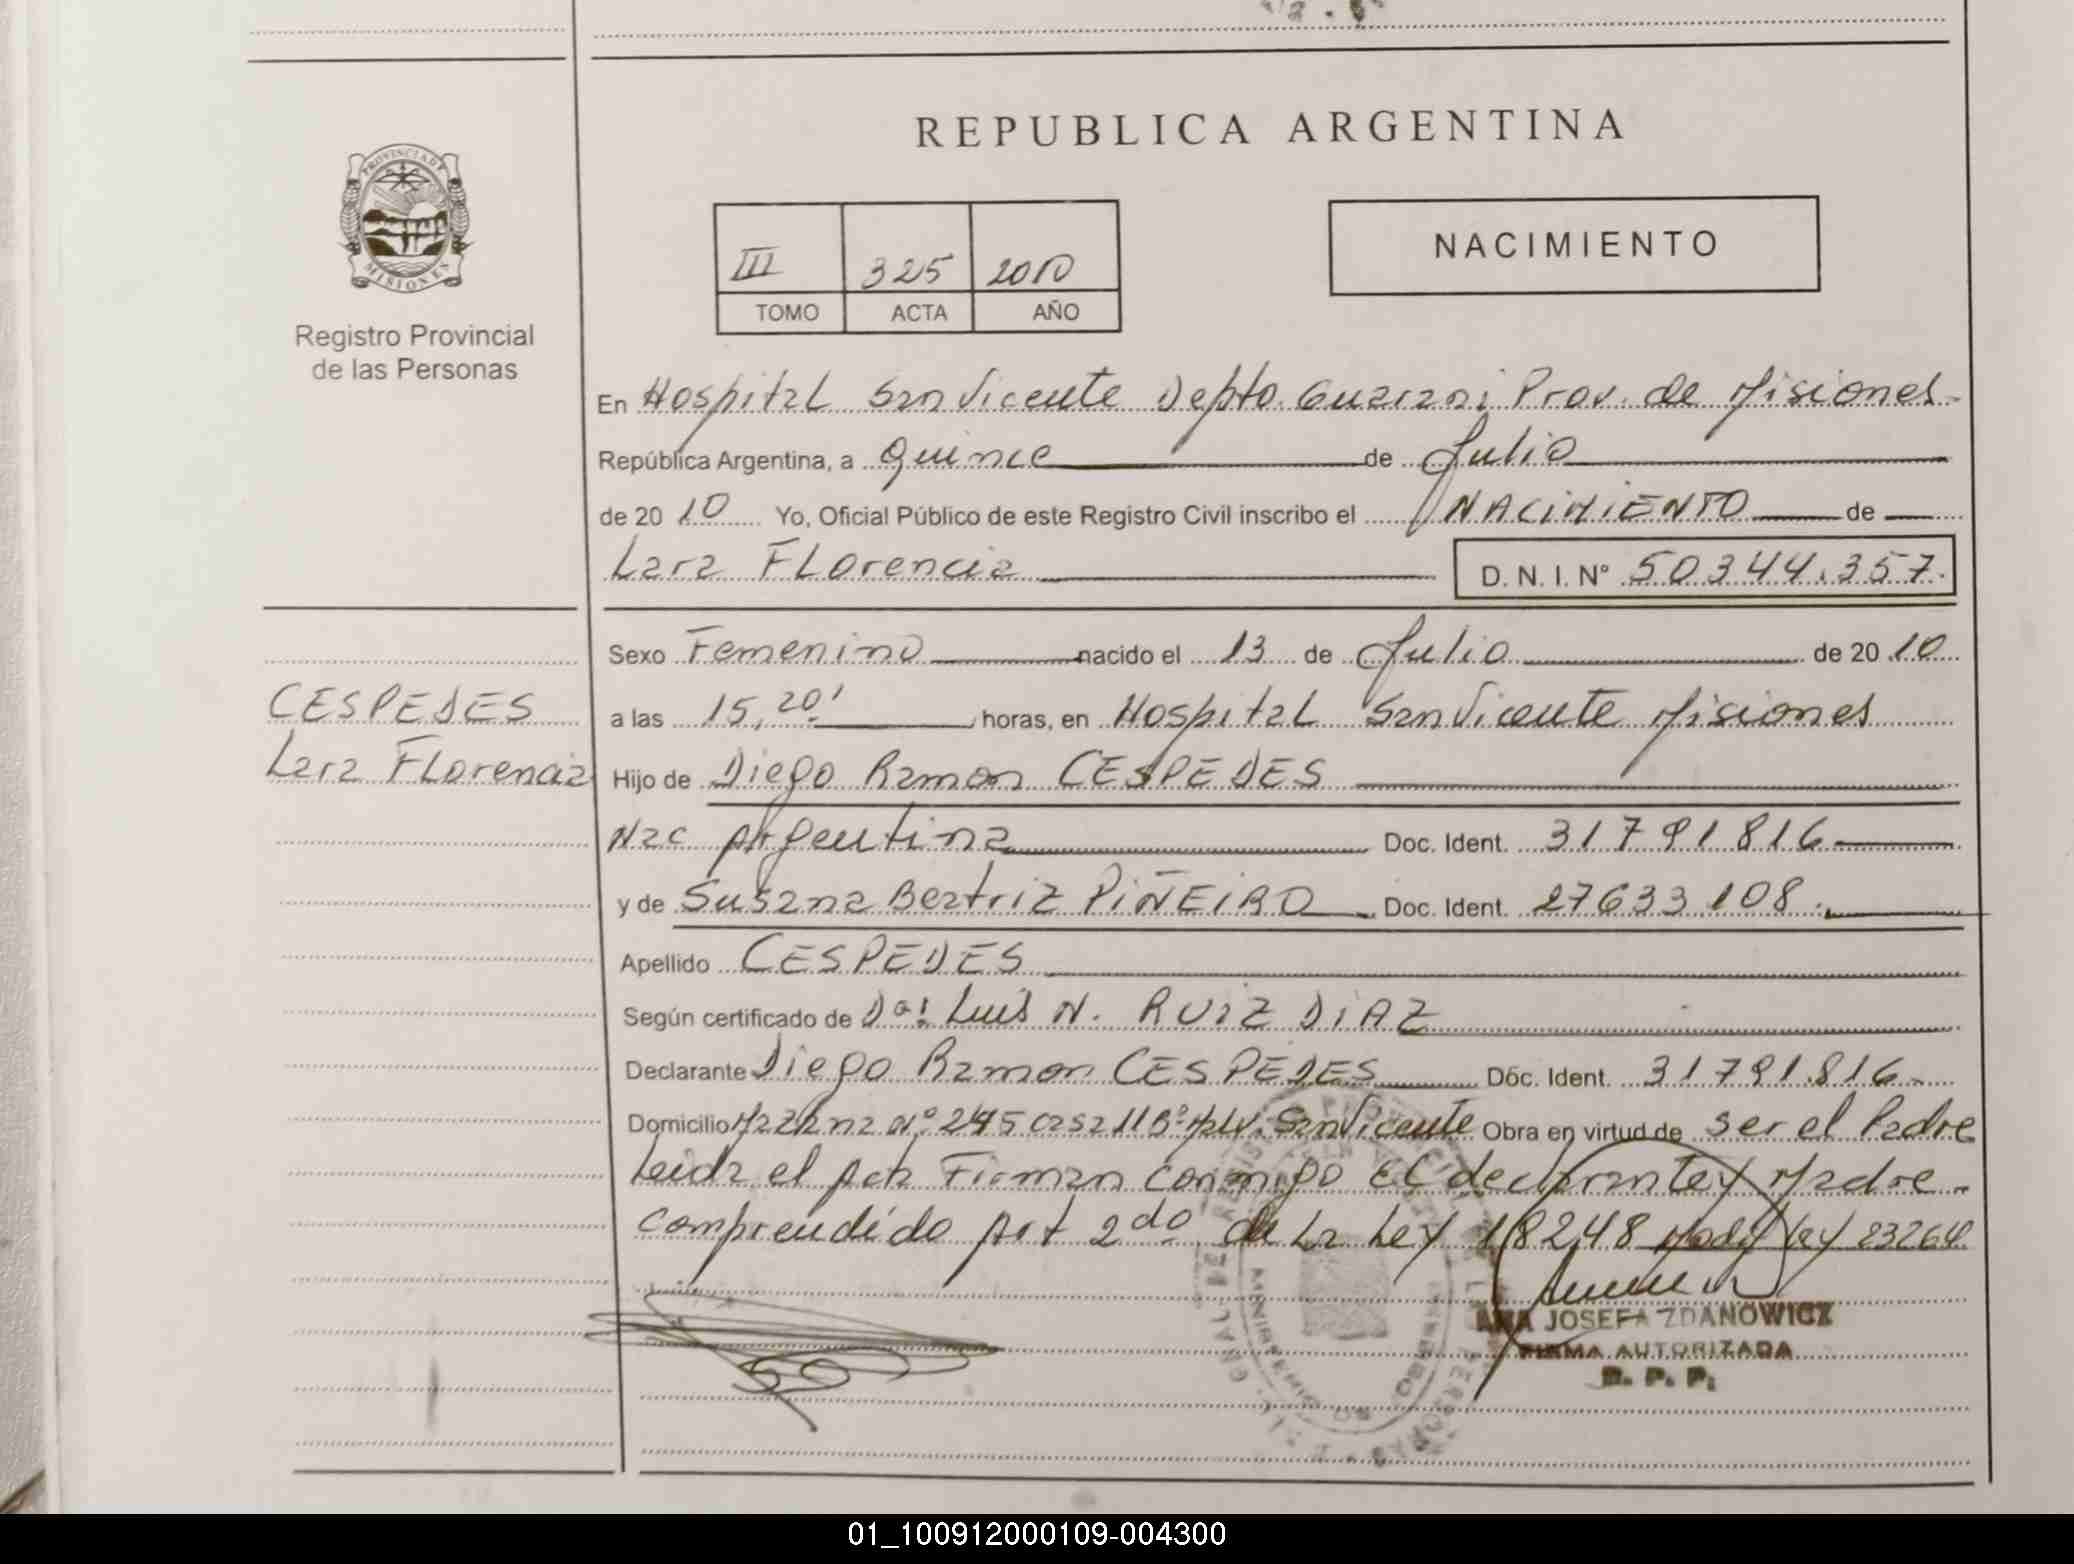 REPUBLICA ARGENTINA
PROVINCIA D
MISIONES
Registro Provincial
de las Personas
III 325 2010
TOMO ACTA AÑO
NACIMIENTO
En Hospital San Vicente Depto. Guarani Prov. de Misiones
República Argentina, a quince de Julio
de 20 10 Yo, Oficial Público de este Registro Civil inscribo el NACIMIENTO de
Lara Florencia D. N. I. N° 50344.357.
Sexo Femenino nacido el 13 de Julio de 20 10
CESPEDES
Lara Florencia
a las 15,20' horas, en Hospital San Vicente Misiones
Hijo de Diego Ramon CESPEDES
Nac Argentina Doc. Ident. 31791816
y de Susana Beatriz PIÑEIRO Doc. Ident. 27633108.
Apellido CESPEDES
Según certificado de Luis N. RUIZ DIAZ
Declarante Diego Ramon CESPEDES Doc. Ident. 31791.816
Domicilio N° 245 casa 11 San Vicente Obra en virtud de ser el Padre
Leida el acta Firman conmigo El declarante y Madre
comprendido Art 2do de La Ley 18248 Modif Ley 23264
ANA JOSEFA ZDANOWICZ
FIRMA AUTORIZADA
R. P. P.
01_100912000109-004300